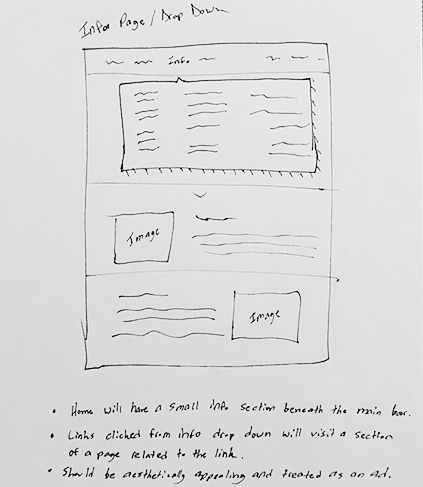 Info Page / Drop Down
Info
Image
Image
• Home will have a small info section beneath the main bar.
• Links clicked from info drop down will visit a section
of a page related to the link.
• Should be aesthetically appealing and treated as an ad.